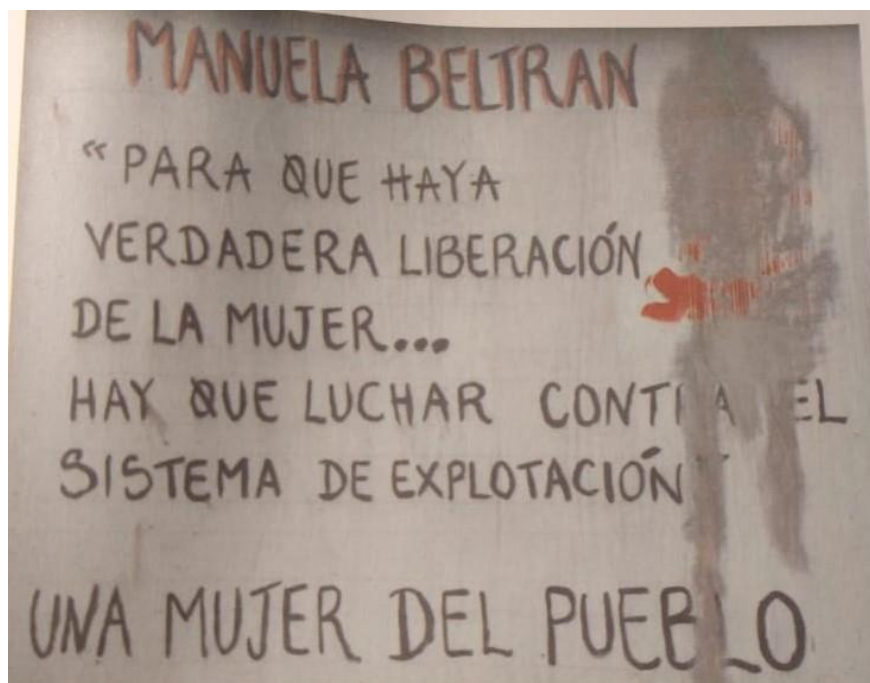 MANUELA BELTRAN
"PARA QUE HAYA
VERDADERA LIBERACIÓN
DE LA MUJER...
HAY QUE LUCHAR CONTRA EL
SISTEMA DE EXPLOTACIÓN"
UNA MUJER DEL PUEBLO